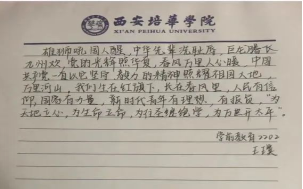 西安培華学院
XI'AN PEIHUA UNIVERSITY
雄狮吼，国人醒，中华先辈洗耻辱，巨龙腾飞
九州欢，党的光辉照华夏，春风万里人心暖，中国
共产党一直以他坚守、毅力的精神照耀祖国大地，
万里河山，我们生在红旗下，长在春风里，人民有信
仰，国家有力量，新时代青年有理想，有担当，“为
天地立心，为生命立命，为往圣继绝学，为万世开太平”。
学前教育2202
王